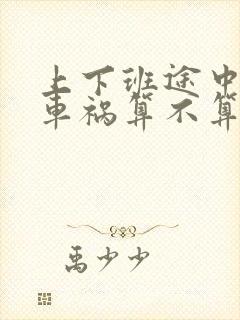 上下班途中
车祸算不算
禹少少